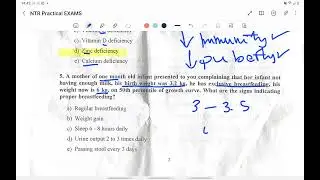 NTR Practical EXAMS
b) Vitamin D deficiency
d) Zinc deficiency
e) Calcium deficiency
↓ immunity
↓ puberty
5. A mother of one month old infant presented to you complaining that her infant not
having enough milk, his birth weight was 3.2 kg, he has exclusive breastfeeding, his
weight now is 6 kg, on 50th percentile of growth curve. What are the signs indicating
proper breastfeeding?
3 – 3.5
a) Regular breastfeeding
b) Weight gain
c) Sleep 6 - 8 hours daily
d) Urine output 2 to 3 times daily
e) Passing stool every 3 days